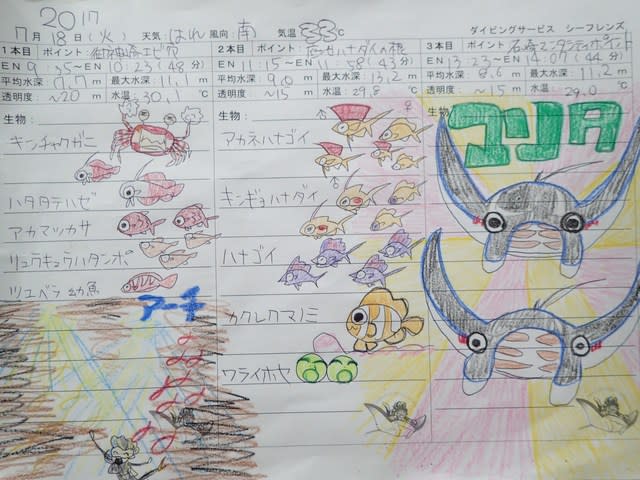 2017
7月18日(火) 天気 はれ 風向 南 気温 33℃ ダイビングサービス シーフレンズ
1本目 ポイント: 御神崎エビ穴
EN 9:35〜EN 10:23(48分)
平均水深: 7.7m 最大水深: 11.1m
透明度: 〜20m 水温: 30.1℃
生物:
キンチャクガニ
ハタタテハゼ
アカマツカサ
リュウキュウハタンポ
ツユベラ幼魚
アーチ
2本目 ポイント: ハナダイの根
EN 11:15〜EN 11:58(43分)
平均水深: 9.0m 最大水深: 13.2m
透明度: 〜15m 水温: 29.8℃
生物: ♂ ♀
アカネハナゴイ
♂
キンギョハナダイ
ハナゴイ
カクレクマノミ
ワライボヤ
3本目 ポイント: 石崎マンタシティポイント
EN 13:23〜EN 14:07(44分)
平均水深: 8.6m 最大水深: 11.2m
透明度: 〜15m 水温: 29.0℃
生物:
マンタ